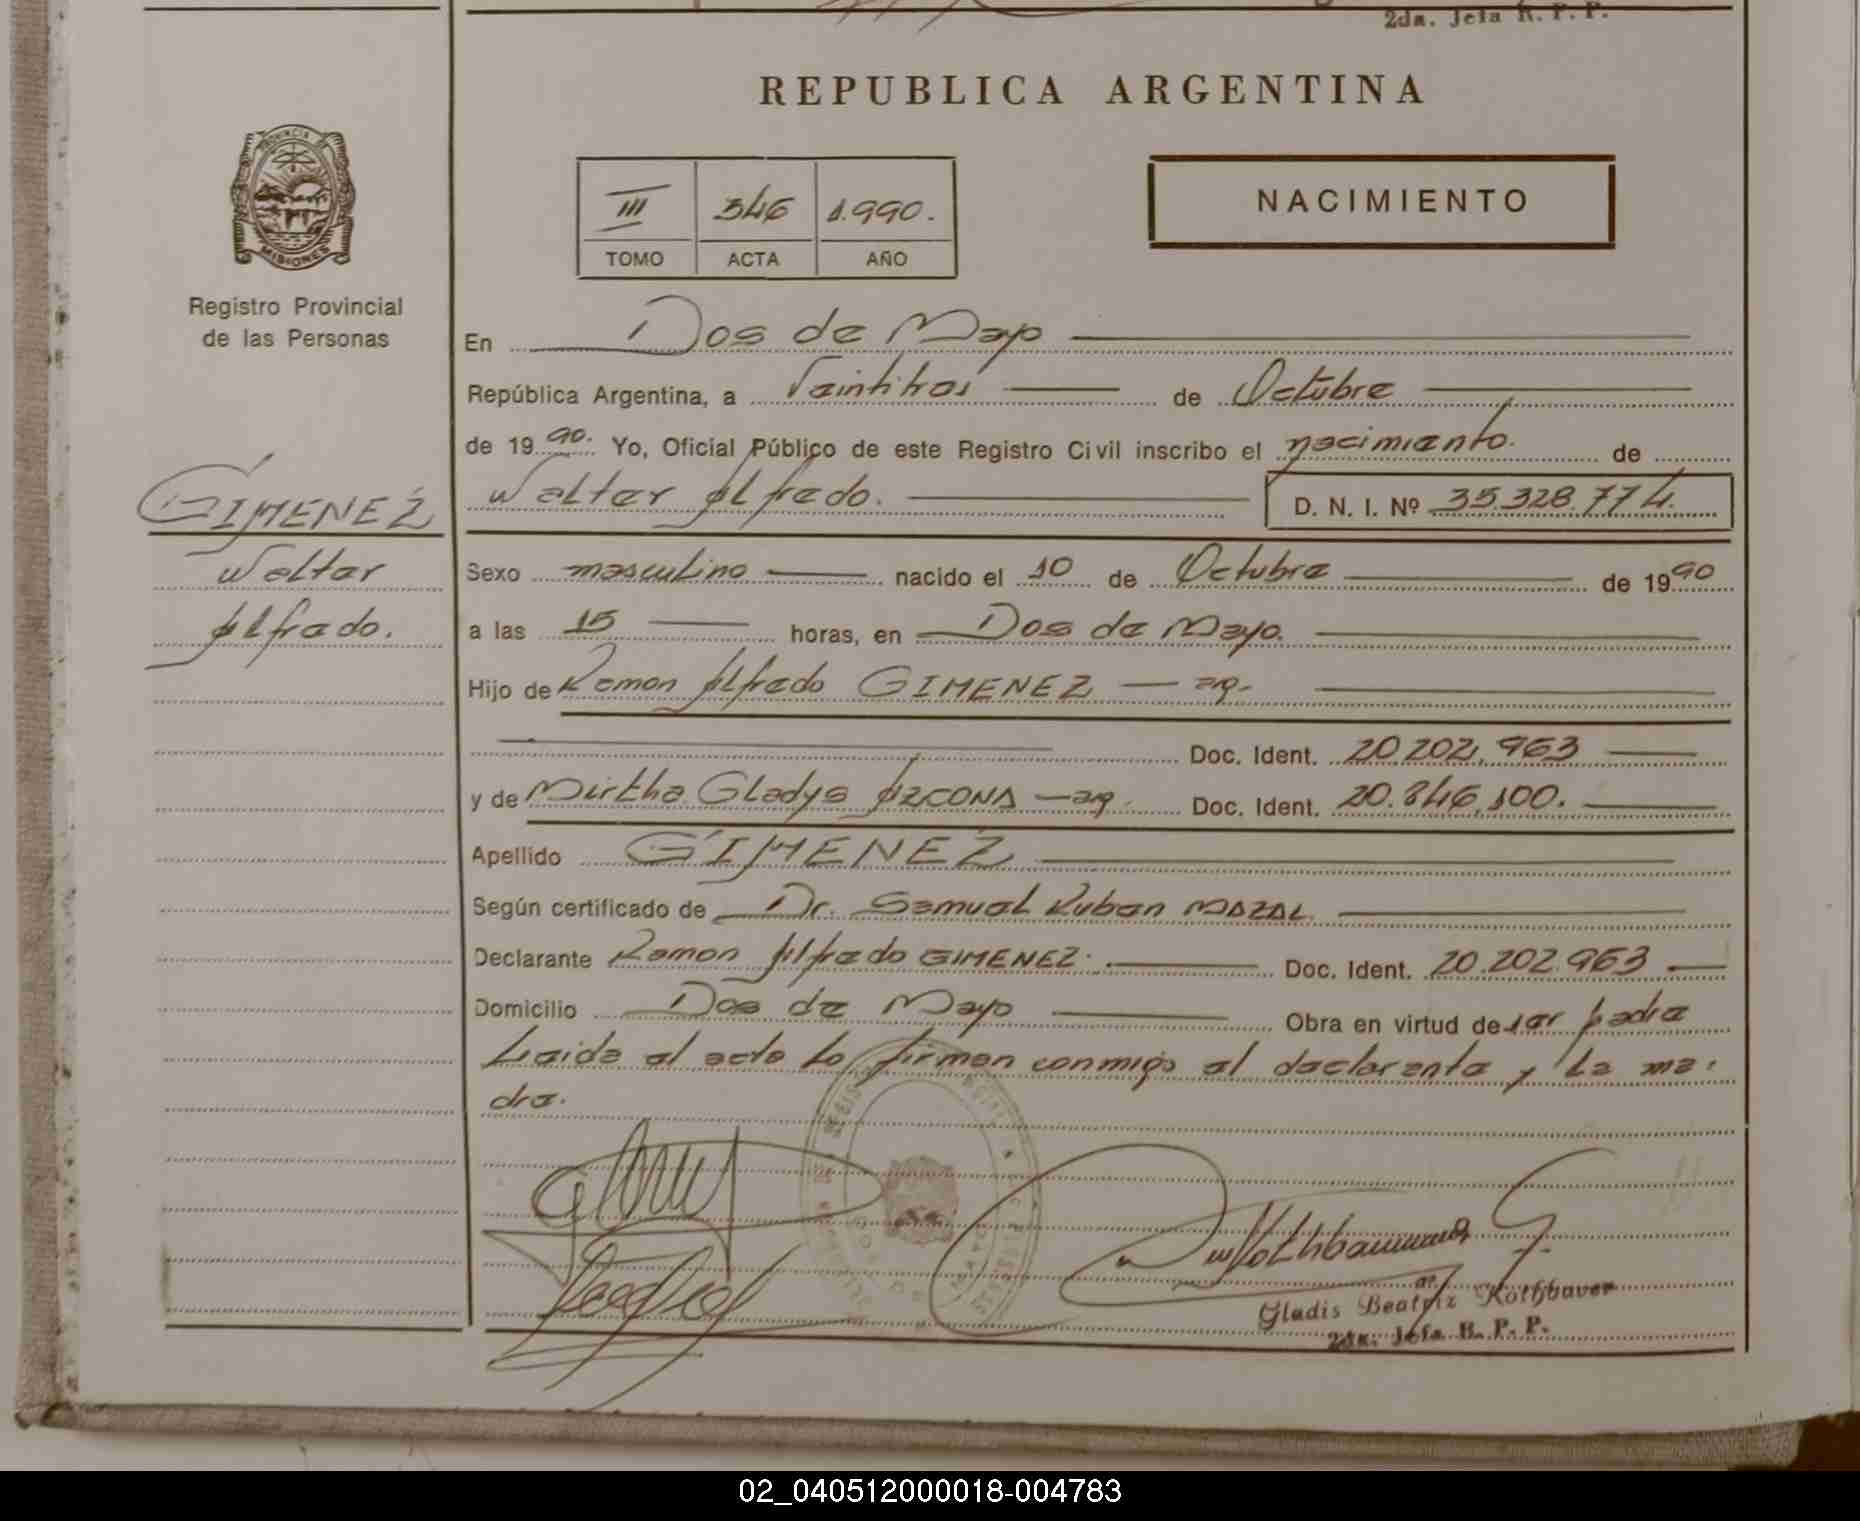 2da. Jefa R. P. P.
REPUBLICA ARGENTINA
PROVINCIA
MISIONES
Registro Provincial
de las Personas
III 346 1.990.
TOMO ACTA AÑO
NACIMIENTO
En Dos de Mayo
República Argentina, a Veintitres de Octubre
de 1990. Yo, Oficial Público de este Registro Civil inscribo el nacimiento. de
Walter Alfredo. D. N. I. Nº 35.328.774.
GIMENEZ
Walter
Alfredo.
Sexo masculino nacido el 10 de Octubre de 1990
a las 15 horas, en Dos de Mayo.
Hijo de Ramon Alfredo GIMENEZ — arg.
Doc. Ident. 20.202.963
y de Mirtha Gladys AZCONA — arg. Doc. Ident. 20.846.100.
Apellido GIMENEZ
Según certificado de Dr. Samuel Ruben MAZAL
Declarante Ramon Alfredo GIMENEZ. Doc. Ident. 20.202.963
Domicilio Dos de Mayo Obra en virtud de ser padre
Leida el acta lo firman conmigo el declarante y la ma-
dre.
Gladis Beatriz Rothbauer
2da. Jefa R. P. P.
02_040512000018-004783